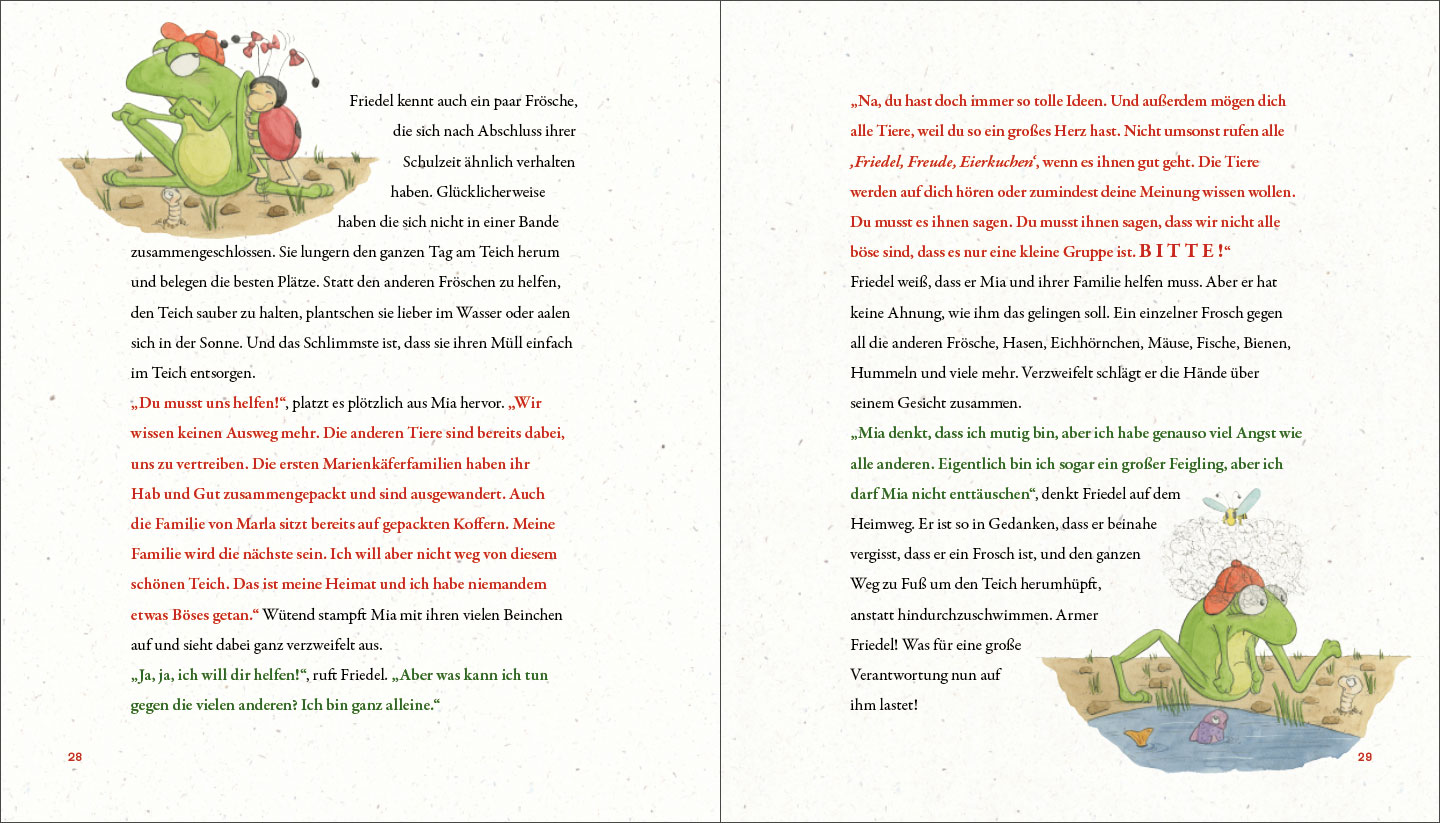 Friedel kennt auch ein paar Frösche,
die sich nach Abschluss ihrer
Schulzeit ähnlich verhalten
haben. Glücklicherweise
haben die sich nicht in einer Bande
zusammengeschlossen. Sie lungern den ganzen Tag am Teich herum
und belegen die besten Plätze. Statt den anderen Fröschen zu helfen,
den Teich sauber zu halten, plantschen sie lieber im Wasser oder aalen
sich in der Sonne. Und das Schlimmste ist, dass sie ihren Müll einfach
im Teich entsorgen.
„Du musst uns helfen!“, platzt es plötzlich aus Mia hervor. „Wir
wissen keinen Ausweg mehr. Die anderen Tiere sind bereits dabei,
uns zu vertreiben. Die ersten Marienkäferfamilien haben ihr
Hab und Gut zusammengepackt und sind ausgewandert. Auch
die Familie von Marla sitzt bereits auf gepackten Koffern. Meine
Familie wird die nächste sein. Ich will aber nicht weg von diesem
schönen Teich. Das ist meine Heimat und ich habe niemandem
etwas Böses getan.“ Wütend stampft Mia mit ihren vielen Beinchen
auf und sieht dabei ganz verzweifelt aus.
„Ja, ja, ich will dir helfen!“, ruft Friedel. „Aber was kann ich tun
gegen die vielen anderen? Ich bin ganz alleine.“
28
„Na, du hast doch immer so tolle Ideen. Und außerdem mögen dich
alle Tiere, weil du so ein großes Herz hast. Nicht umsonst rufen alle
‚Friedel, Freude, Eierkuchen‘, wenn es ihnen gut geht. Die Tiere
werden auf dich hören oder zumindest deine Meinung wissen wollen.
Du musst es ihnen sagen. Du musst ihnen sagen, dass wir nicht alle
böse sind, dass es nur eine kleine Gruppe ist. B I T T E !“
Friedel weiß, dass er Mia und ihrer Familie helfen muss. Aber er hat
keine Ahnung, wie ihm das gelingen soll. Ein einzelner Frosch gegen
all die anderen Frösche, Hasen, Eichhörnchen, Mäuse, Fische, Bienen,
Hummeln und viele mehr. Verzweifelt schlägt er die Hände über
seinem Gesicht zusammen.
„Mia denkt, dass ich mutig bin, aber ich habe genauso viel Angst wie
alle anderen. Eigentlich bin ich sogar ein großer Feigling, aber ich
darf Mia nicht enttäuschen“, denkt Friedel auf dem
Heimweg. Er ist so in Gedanken, dass er beinahe
vergisst, dass er ein Frosch ist, und den ganzen
Weg zu Fuß um den Teich herumhüpft,
anstatt hindurchzuschwimmen. Armer
Friedel! Was für eine große
Verantwortung nun auf
ihm lastet!
29